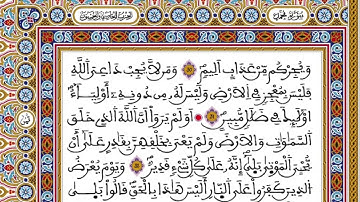 وَيُجِرْكُم مِّنْ عَذَابٍ أَلِيمٍ وَمَن لَّا يُجِبْ دَاعِيَ اَللَّهِ
فَلَيْسَ بِمُعْجِزٍ فِي اِلَارْضِ وَلَيْسَ لَهُۥ مِن دُونِهِۦٓ أَوْلِيَآءُ
اوْلَٰٓئِكَ فِي ضَلَٰلٍ مُّبِينٍ أَوَلَمْ يَرَوَاْ اَنَّ اَللَّهَ اَلذِي خَلَقَ
اَلسَّمَٰوَٰتِ وَالَارْضَ وَلَمْ يَعْيَ بِخَلْقِهِنَّ بِقَٰدِرٍ عَلَىٰٓ أَنْ
يُّحْـِۧيَ اَلْمَوْت۪ىٰ بَل۪ىٰٓ إِنَّهُۥ عَلَىٰ كُلِّ شَےْءٍ قَدِيرٌ وَيَوْمَ يُعْرَضُ
اُلذِينَ كَفَرُواْ عَلَى اَلنّ۪ارِ أَلَيْسَ هَٰذَا بِالْحَقِّ قَالُواْ بَل۪ىٰ